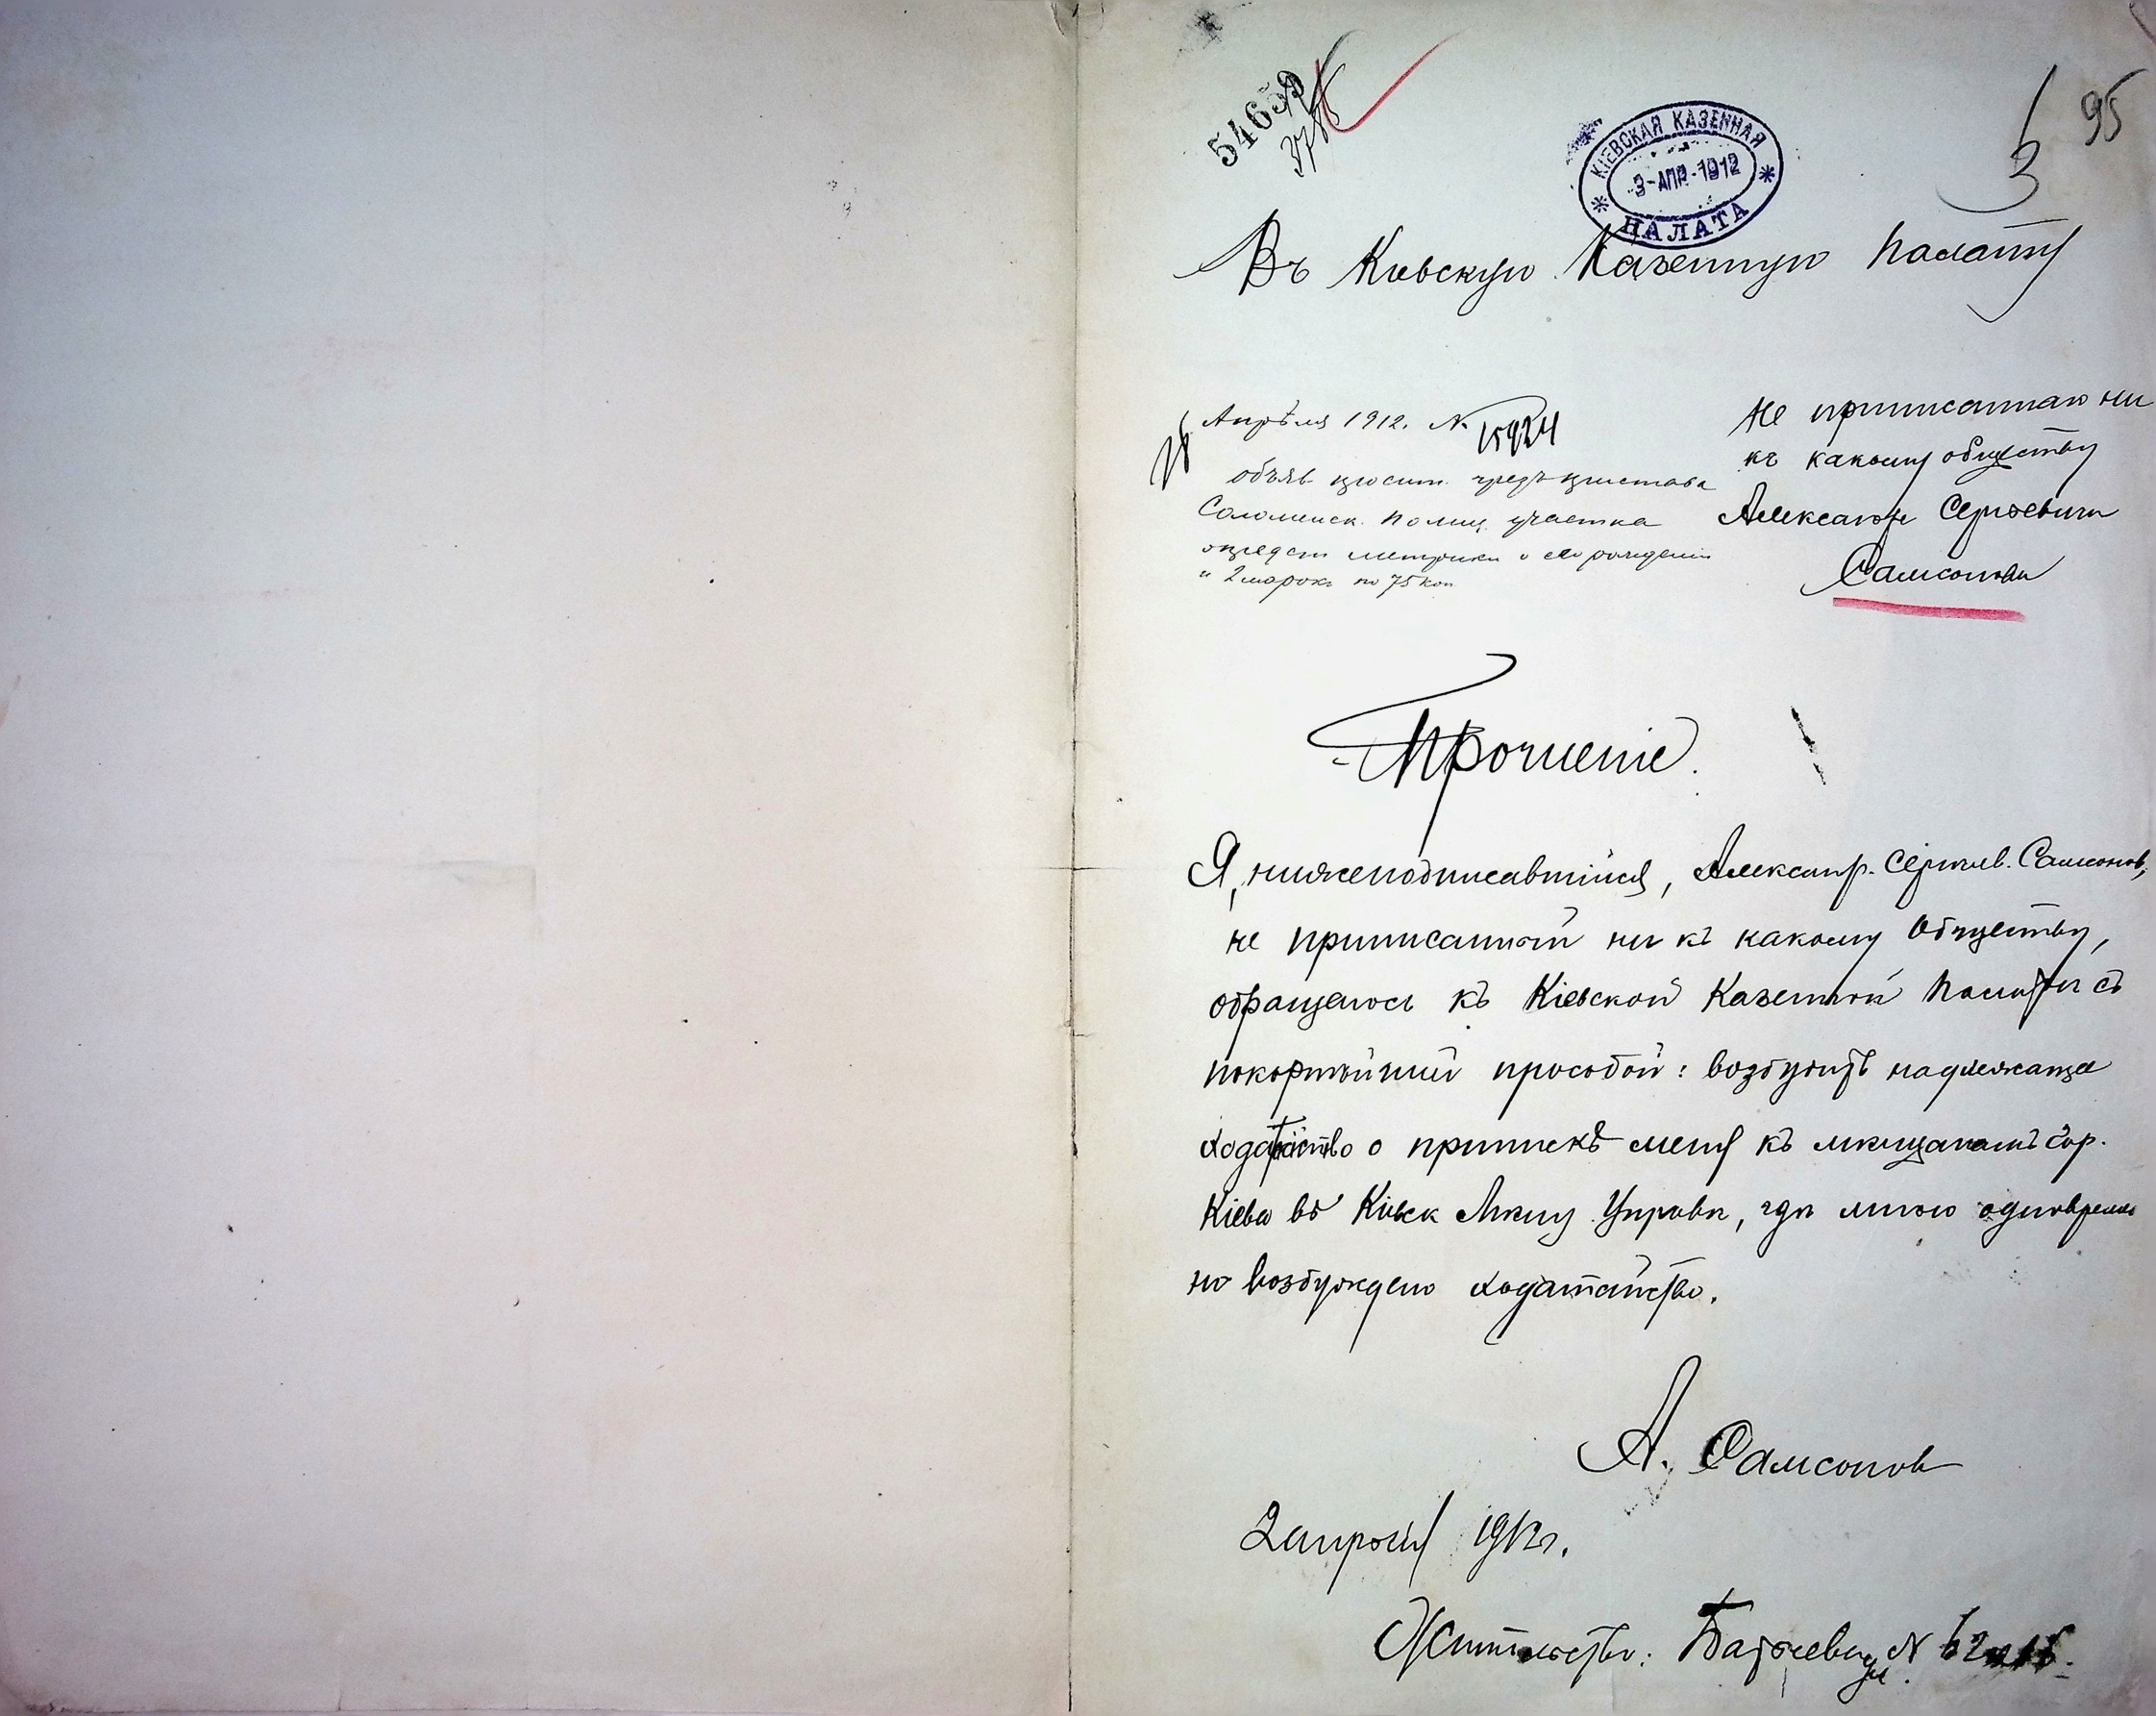 54659
95
3
КІЕВСКАЯ КАЗЕННАЯ
3-АПР.1912
ПАЛАТА
Въ Кіевскую Казенную Палату
Апрѣля 1912. № 15924
объяв просит. чрезъ пристава
Соломенск. Полиц. участка
предст метрики о его рожденіи
и 2 марокъ по 75 коп
Не приписаннаго ни
къ какому обществу
Александра Сергѣевича
Самсонова
Прошеніе.
Я, нижеподписавшійся, Александр. Сергѣев. Самсонов,
не приписанный ни къ какому Обществу,
обращаюсь къ Кіевской Казенной Палатѣ съ
покорнѣйшей просьбой: возбудить надлежаще
ходатайство о припискѣ меня къ мѣщанамъ гор.
Кіева въ Кіевск Мѣщ Управѣ, гдѣ мною одновремен
но возбуждено ходатайство.
А. Самсонов
2 апрѣля 1912 г.
Жительство: ул. № 62